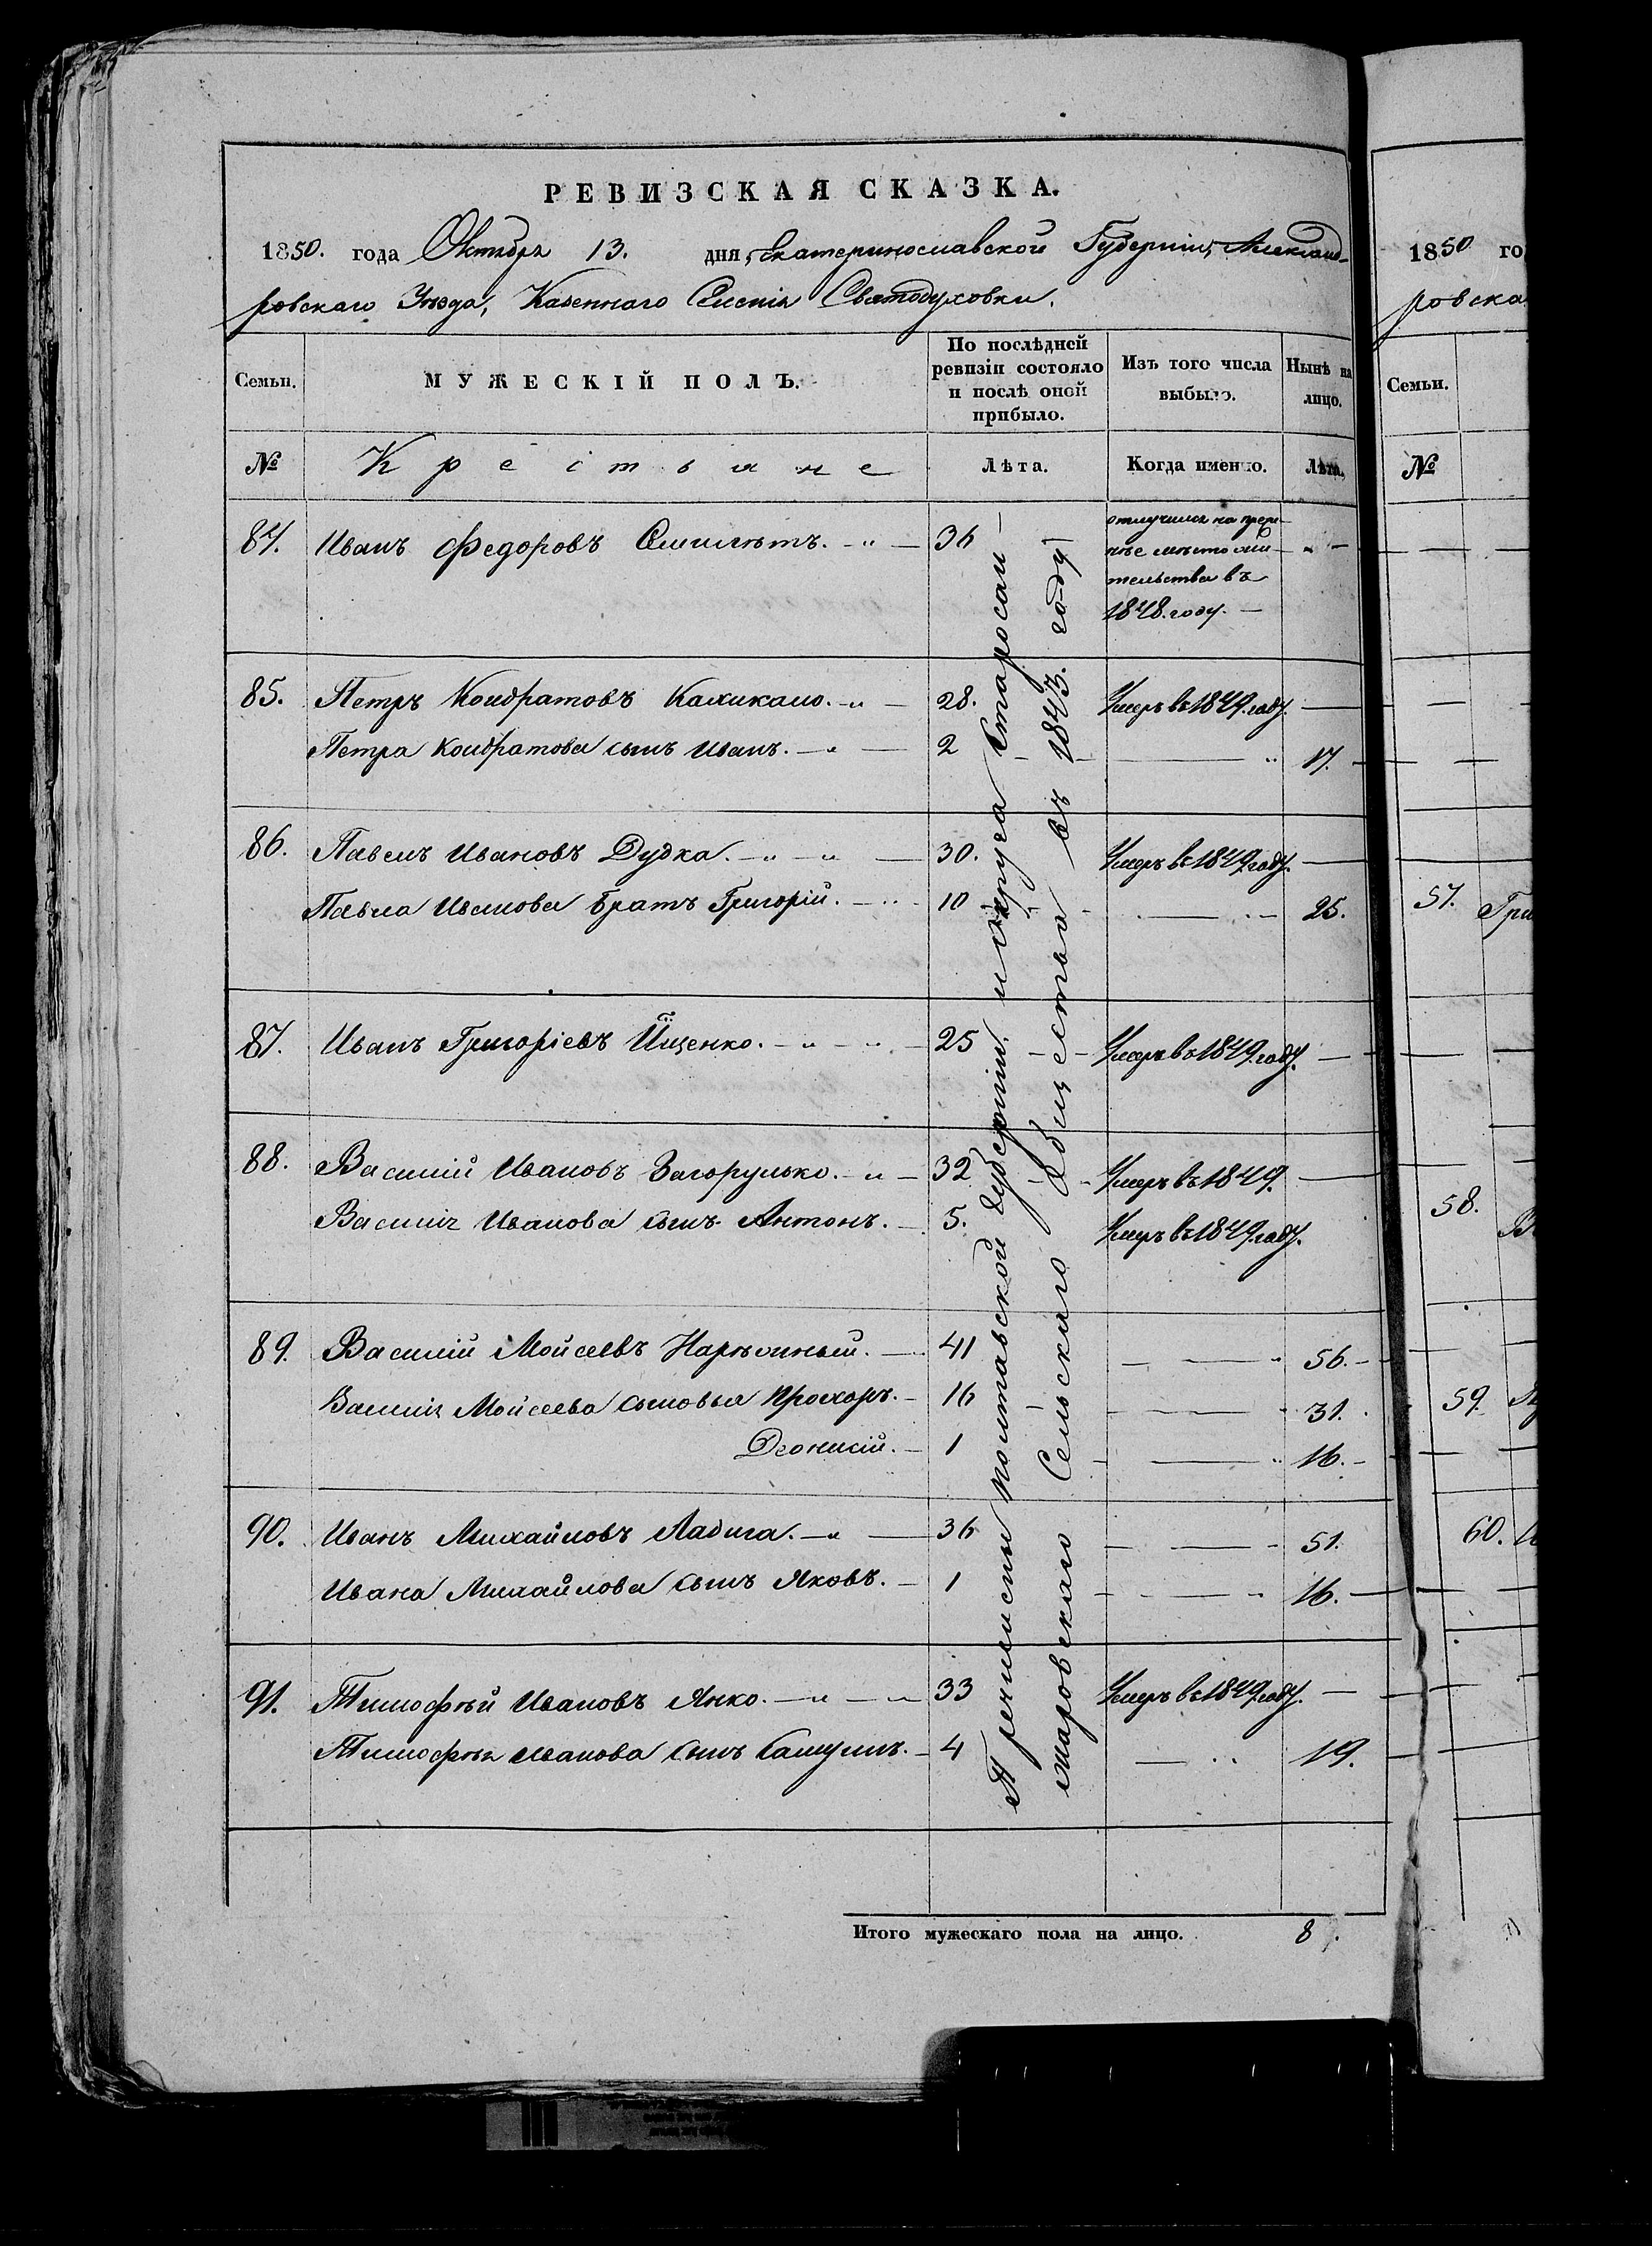 РЕВИЗСКАЯ СКАЗКА.
1850. года Октября 13. дня, Екатеринославской Губерніи, Александ-
ровскаго Уѣзда, Казеннаго Селенія Святодуховки.
Семьи. МУЖЕСКІЙ ПОЛЪ. По послѣдней ревизіи состояло и послѣ оной прибыло. Изъ того числа выбыло. Нынѣ на лицо.
№ Крестьяне Лѣта. Когда именно. Лѣта.
84. Иванъ Федоровъ 36 отлучился на преж-
нее мѣсто жи-
тельства въ
1848. году.
85. Петръ Кондратовъ 28. Умеръ въ 1849. году.
Петра Кондратова сынъ Иванъ. 2 17.
86. Павелъ Ивановъ Дудка. 30. Умеръ въ 1849. году.
Павла Иванова братъ Григорій. 10 25.
87. Иванъ Григоріевъ Ищенко. 25 Умеръ въ 1849. году.
88. Василій Ивановъ Загорулько. 32 Умеръ въ 1849.
Василія Иванова сынъ Антонъ. 5. Умеръ въ 1849. году.
89. Василій Мойсеевъ 41 56.
Василія Мойсеева сыновья Прохоръ. 16 31.
Деонисій. 1 16.
90. Иванъ Михайловъ Ладыга. 36 51.
Ивана Михайлова сынъ Яковъ. 1 16.
91. Тимофѣй Ивановъ Янко. 33 Умеръ въ 1849. году.
Тимофѣя Иванова сынъ 4 19.
Полтавской Губерніи и Округа Старосан-
жаровскаго Сельскаго Общества въ 1843. году
Итого мужескаго пола на лицо. 8.
1850 го
ровска
Семьи.
№
57. Гри
58.
59.
60.